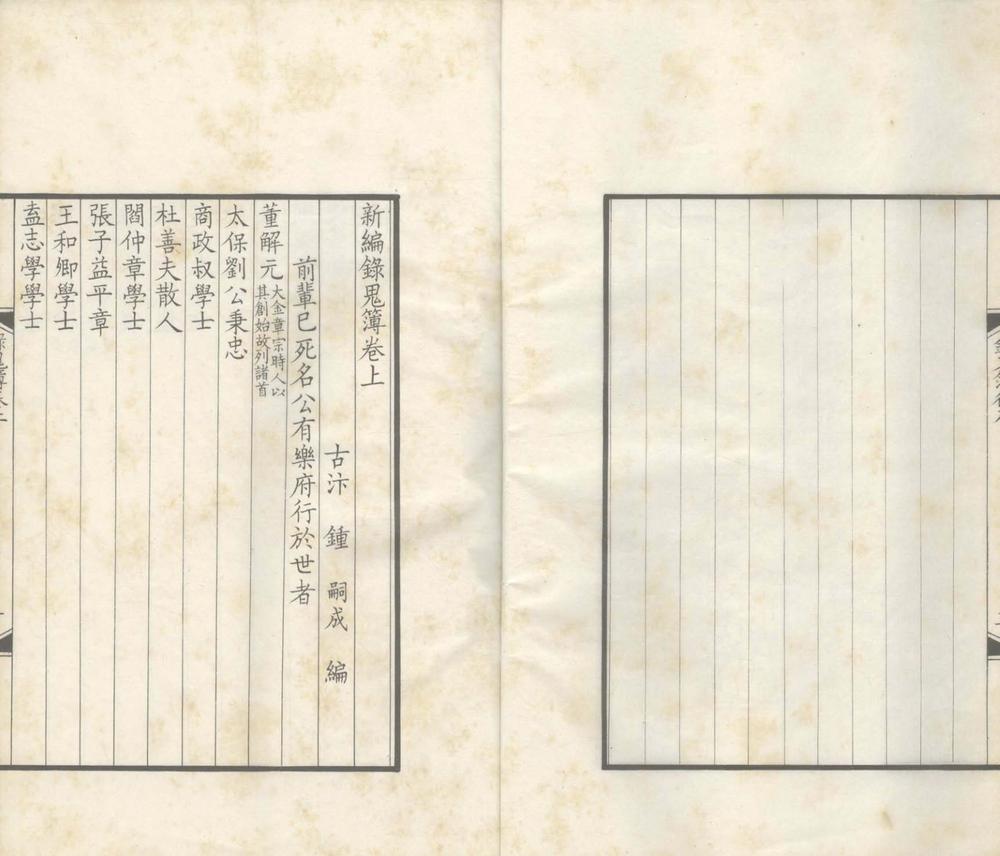 新編錄鬼簿卷上
古汴 鍾 嗣成 編
前輩已死名公有樂府行於世者
董解元大金章宗時人以其創始故列諸首
太保劉公秉忠
商政叔學士
杜善夫散人
閻仲章學士
張子益平章
王和卿學士
盍志學學士